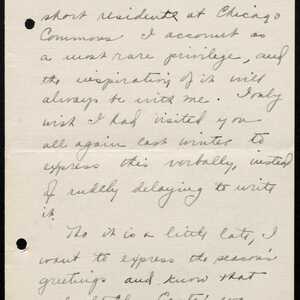 short residents at Chicago
Commons I account as
a most rare privilege, and
the inspiration of it will
always be with me. I only
wish I had visited you
all again last winter to
express this verbally, instead
of rudely delaying to write
it.
Tho it is a little late, I
want to express the season's
greetings and know that